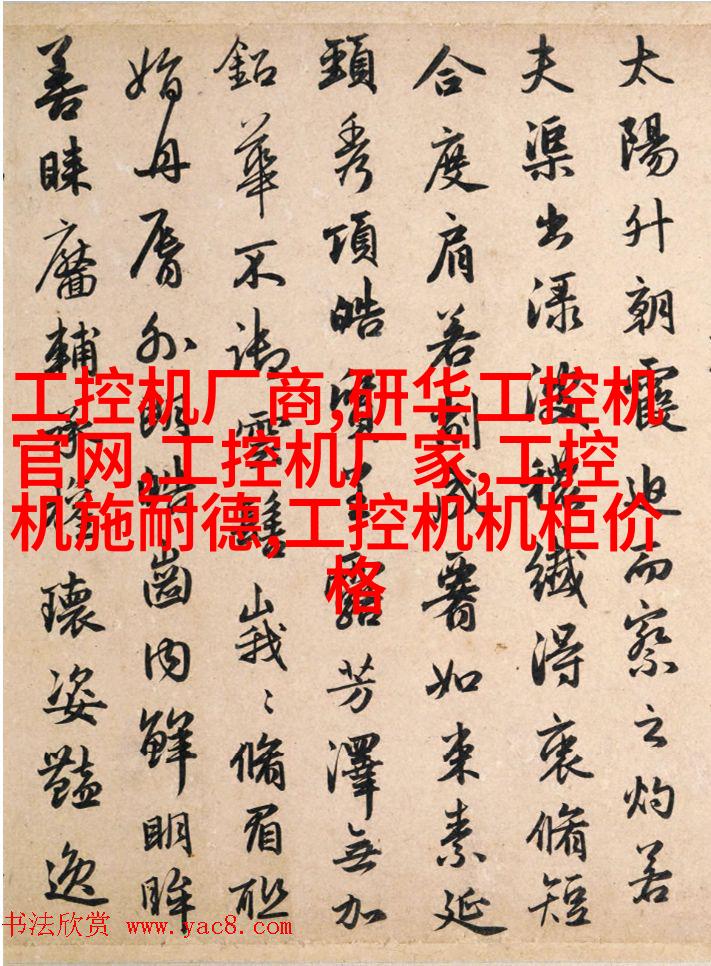 太陽升朝霞迫而察之灼若
夫渠出渌波穠纖得衷脩短
合度肩若削成如束素延
頸秀項皓質呈露芳澤無加
鉛華不御雲髻峩〻脩眉聯
娟丹脣外朗皓齒内鮮明眸
善睞靨輔承權瓌姿豔逸
工控机厂商,研华工控机
官网,工控机厂家,工控
机施耐德,工控机机柜价
格
书法欣赏 www.yac8.com